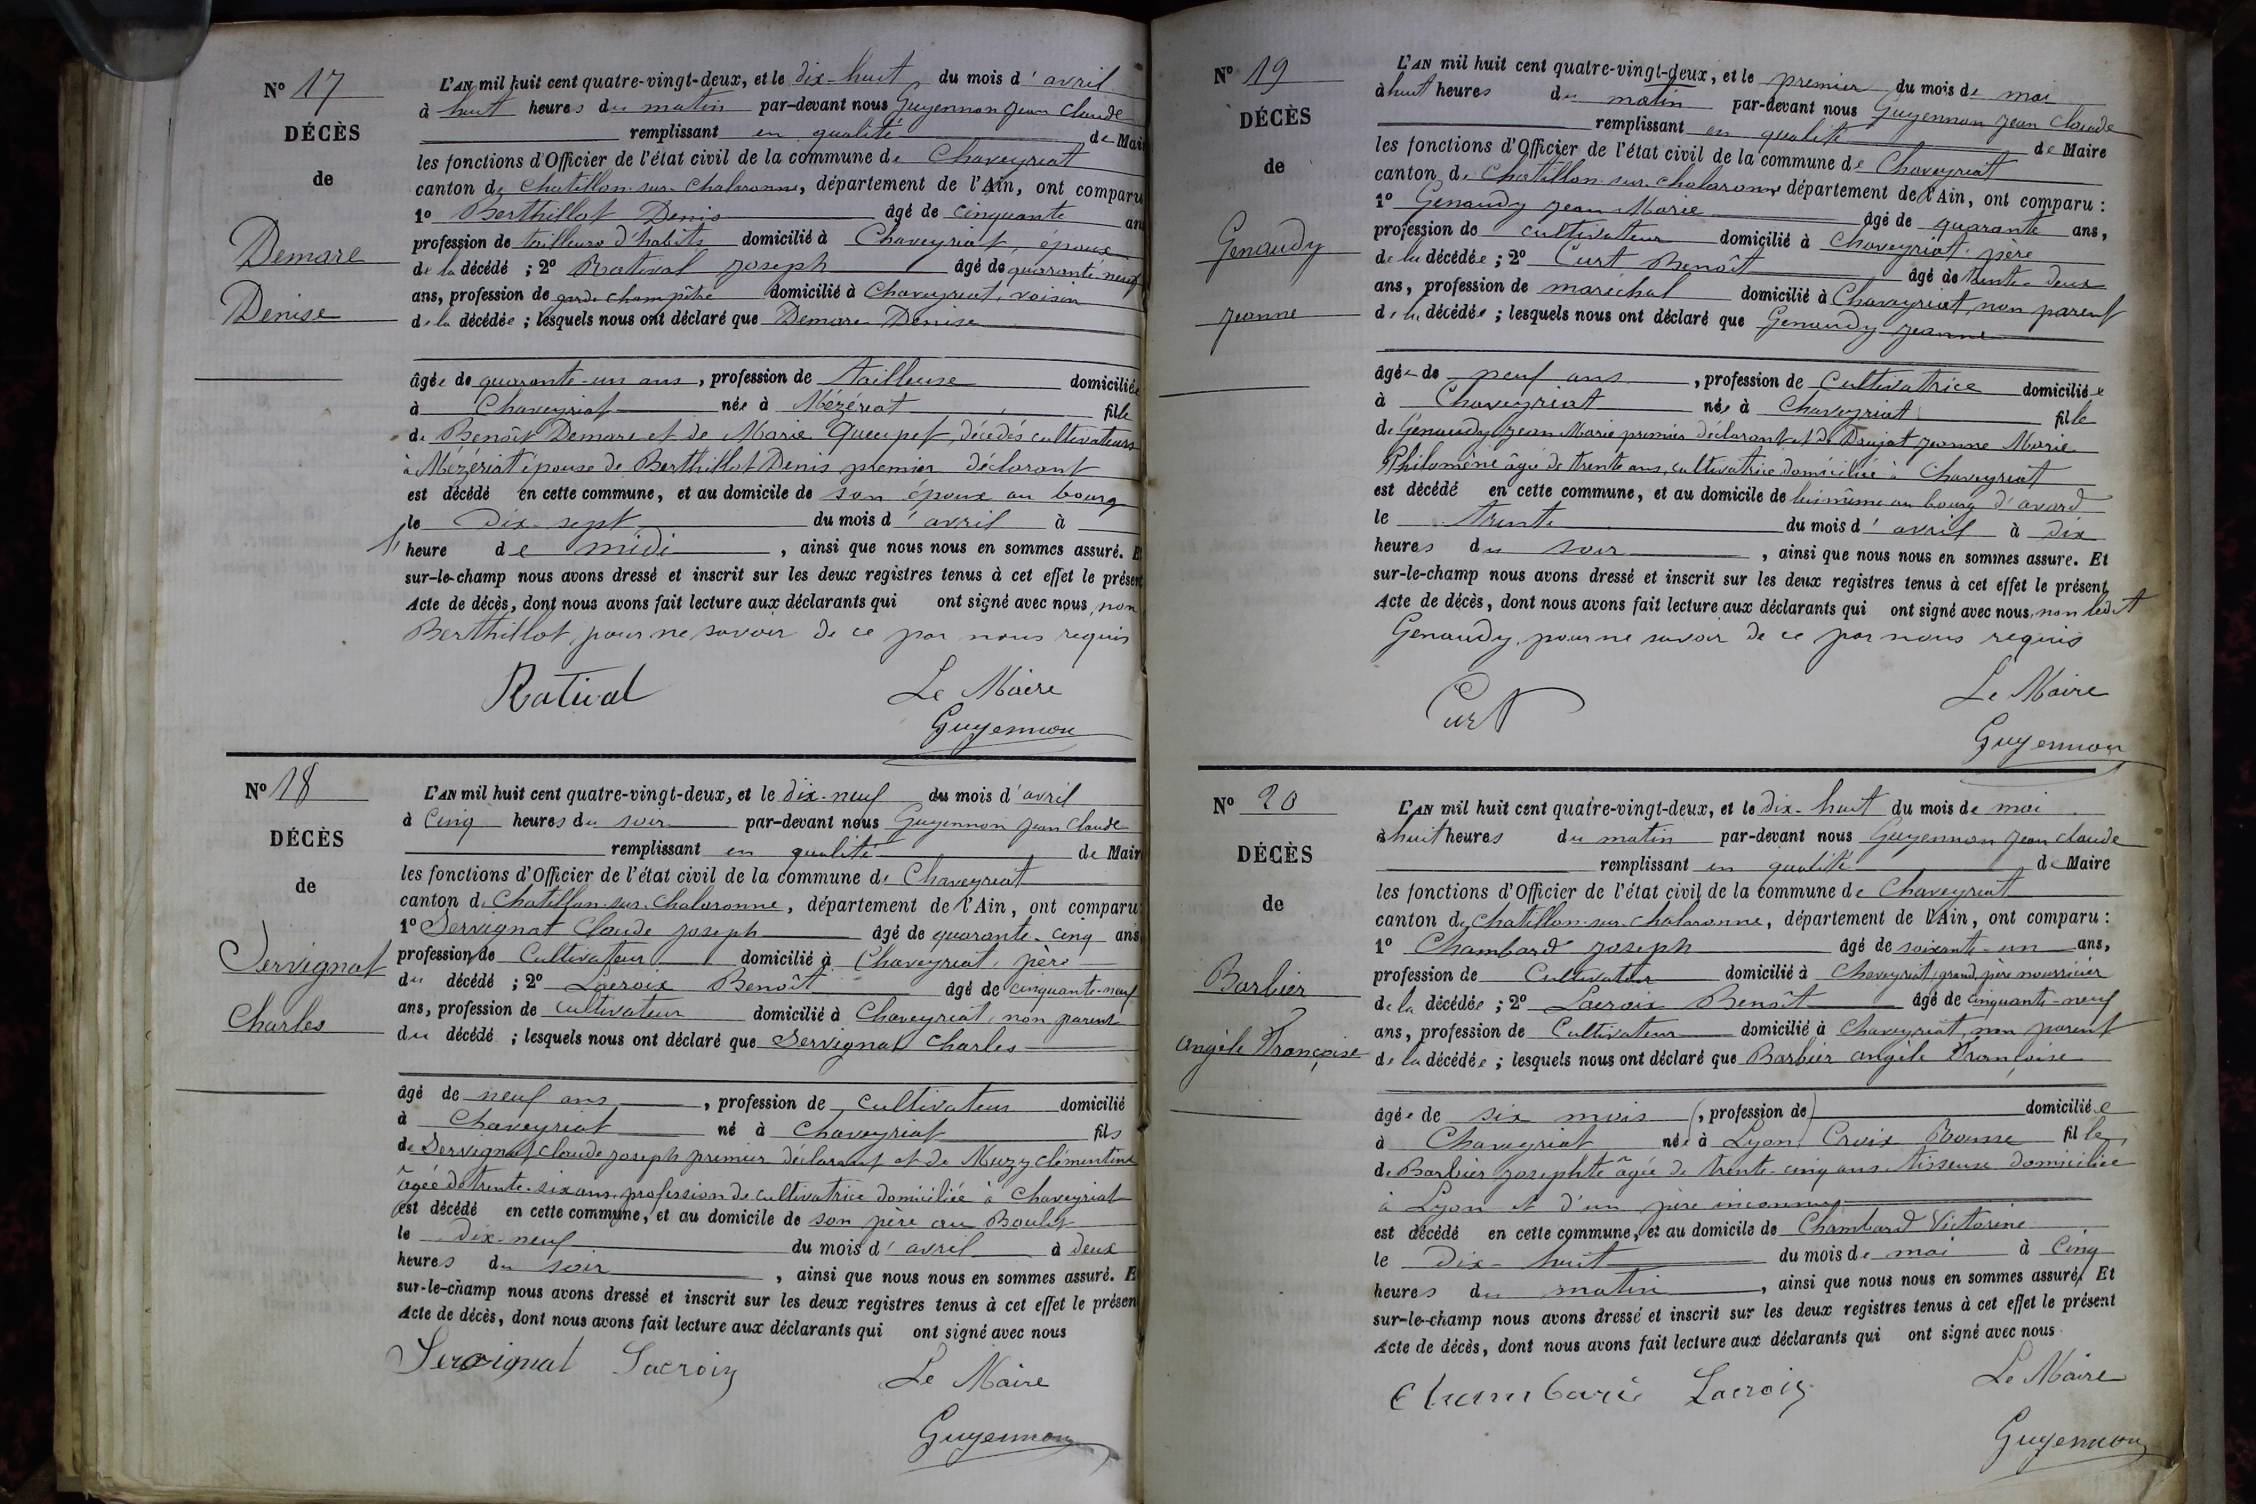 N° 17
DÉCÈS
de
Demare
Denise
L'AN mil huit cent quatre-vingt-deux, et le dix-huit du mois d'avril
à huit heures du matin par-devant nous Guyennon Jean Claude
remplissant en qualité de Mair
les fonctions d'Officier de l'état civil de la commune de Chaveyriat
canton de Chatillon-sur-Chalaronne, département de l'Ain, ont comparu
1° Berthillot Denis âgé de cinquante an
profession de tailleurs d'habits domicilié à Chaveyriat, époux
de la décédé ; 2° Ratival Joseph âgé de quarante neuf
ans, profession de garde champêtre domicilié à Chaveyriat, voisin
de la décédée ; lesquels nous ont déclaré que Demare Denise
âgée de quarante-un ans, profession de tailleuse domiciliée
à Chaveyriat née à Mézériat fille
de Benoît Demare et de Marie décédés cultivateurs
à Mézériat épouse de Berthillot Denis premier déclarant
est décédé en cette commune, et au domicile de son époux au bourg
le dix-sept du mois d'avril à
1' heure de midi, ainsi que nous nous en sommes assuré. E
sur-le-champ nous avons dressé et inscrit sur les deux registres tenus à cet effet le présent
Acte de décès, dont nous avons fait lecture aux déclarants qui ont signé avec nous, non
Berthillot, pour ne savoir de ce par nous requis
Ratival Le Maire
Guyennon
N° 18
DÉCÈS
de
Servignat
Charles
L'AN mil huit cent quatre-vingt-deux, et le dix-neuf du mois d'avril
à cinq heures du soir par-devant nous Guyennon Jean Claude
remplissant en qualité de Mair
les fonctions d'Officier de l'état civil de la commune de Chaveyriat
canton de Chatillon-sur-Chalaronne, département de l'Ain, ont comparu
1° Servignat Claude Joseph âgé de quarante-cinq ans
profession de Cultivateur domicilié à Chaveyriat, père
du décédé ; 2° Lacroix Benoît âgé de cinquante-neuf
ans, profession de cultivateur domicilié à Chaveyriat, non parent
du décédé ; lesquels nous ont déclaré que Servignat Charles
âgé de neuf ans, profession de cultivateur domicilié
à Chaveyriat né à Chaveyriat fils
de Servignat Claude Joseph premier déclarant et de Muzy Clémentine
âgée de trente-six ans, profession de cultivatrice domiciliée à Chaveyriat
est décédé en cette commune, et au domicile de son père au
le dix-neuf du mois d'avril à deux
heures du soir, ainsi que nous nous en sommes assuré. E
sur-le-champ nous avons dressé et inscrit sur les deux registres tenus à cet effet le présen
Acte de décès, dont nous avons fait lecture aux déclarants qui ont signé avec nous
Servignat Lacroix Le Maire
Guyennon
N° 19
DÉCÈS
de
Genaudy
Jeanne
L'AN mil huit cent quatre-vingt-deux, et le premier du mois de mai
à huit heures du matin par-devant nous Guyennon Jean Claude
remplissant en qualité de Maire
les fonctions d'Officier de l'état civil de la commune de Chaveyriat
canton de Chatillon-sur-Chalaronne département de l'Ain, ont comparu :
1° Genaudy Jean Marie âgé de quarante ans,
profession de cultivateur domicilié à Chaveyriat, père
de la décédée ; 2° Curt Benoît âgé de trente-deux
ans, profession de maréchal domicilié à Chaveyriat, non parent
de la décédée ; lesquels nous ont déclaré que Genaudy Jeanne
âgée de neuf ans, profession de Cultivatrice domiciliée
à Chaveyriat née à Chaveyriat fille
de Genaudy Jean Marie premier déclarant et de Jeanne Marie
Philomène âgée de trente ans, cultivatrice domiciliée à Chaveyriat
est décédé en cette commune, et au domicile de lui-même au bourg
le trente du mois d'avril à dix
heures du soir, ainsi que nous nous en sommes assure. Et
sur-le-champ nous avons dressé et inscrit sur les deux registres tenus à cet effet le présent
Acte de décès, dont nous avons fait lecture aux déclarants qui ont signé avec nous, non ledit
Genaudy, pour ne savoir de ce par nous requis
Curt Le Maire
Guyennon
N° 20
DÉCÈS
de
Barbier
Angèle Françoise
L'AN mil huit cent quatre-vingt-deux, et le dix-huit du mois de mai
à huit heures du matin par-devant nous Guyennon Jean Claude
remplissant en qualité de Maire
les fonctions d'Officier de l'état civil de la commune de Chaveyriat
canton de Chatillon-sur-Chalaronne, département de l'Ain, ont comparu :
1° Chambard Joseph âgé de soixante-un ans,
profession de Cultivateur domicilié à Chaveyriat, grand père nourricier
de la décédée ; 2° Lacroix Benoît âgé de cinquante-neuf
ans, profession de Cultivateur domicilié à Chaveyriat, non parent
de la décédée ; lesquels nous ont déclaré que Barbier Angèle Françoise
âgée de six mois (, profession de) domiciliée
à Chaveyriat née à Lyon, Croix Rousse fille
de Barbier Josephte âgée de trente-cinq ans tisseuse domiciliée
à Lyon et d'un père inconnu
est décédé en cette commune, et au domicile de Chambard Victorine
le dix-huit du mois de mai à cinq
heures du matin, ainsi que nous nous en sommes assuré. Et
sur-le-champ nous avons dressé et inscrit sur les deux registres tenus à cet effet le présent
Acte de décès, dont nous avons fait lecture aux déclarants qui ont signé avec nous
Lacroix Le Maire
Guyennon